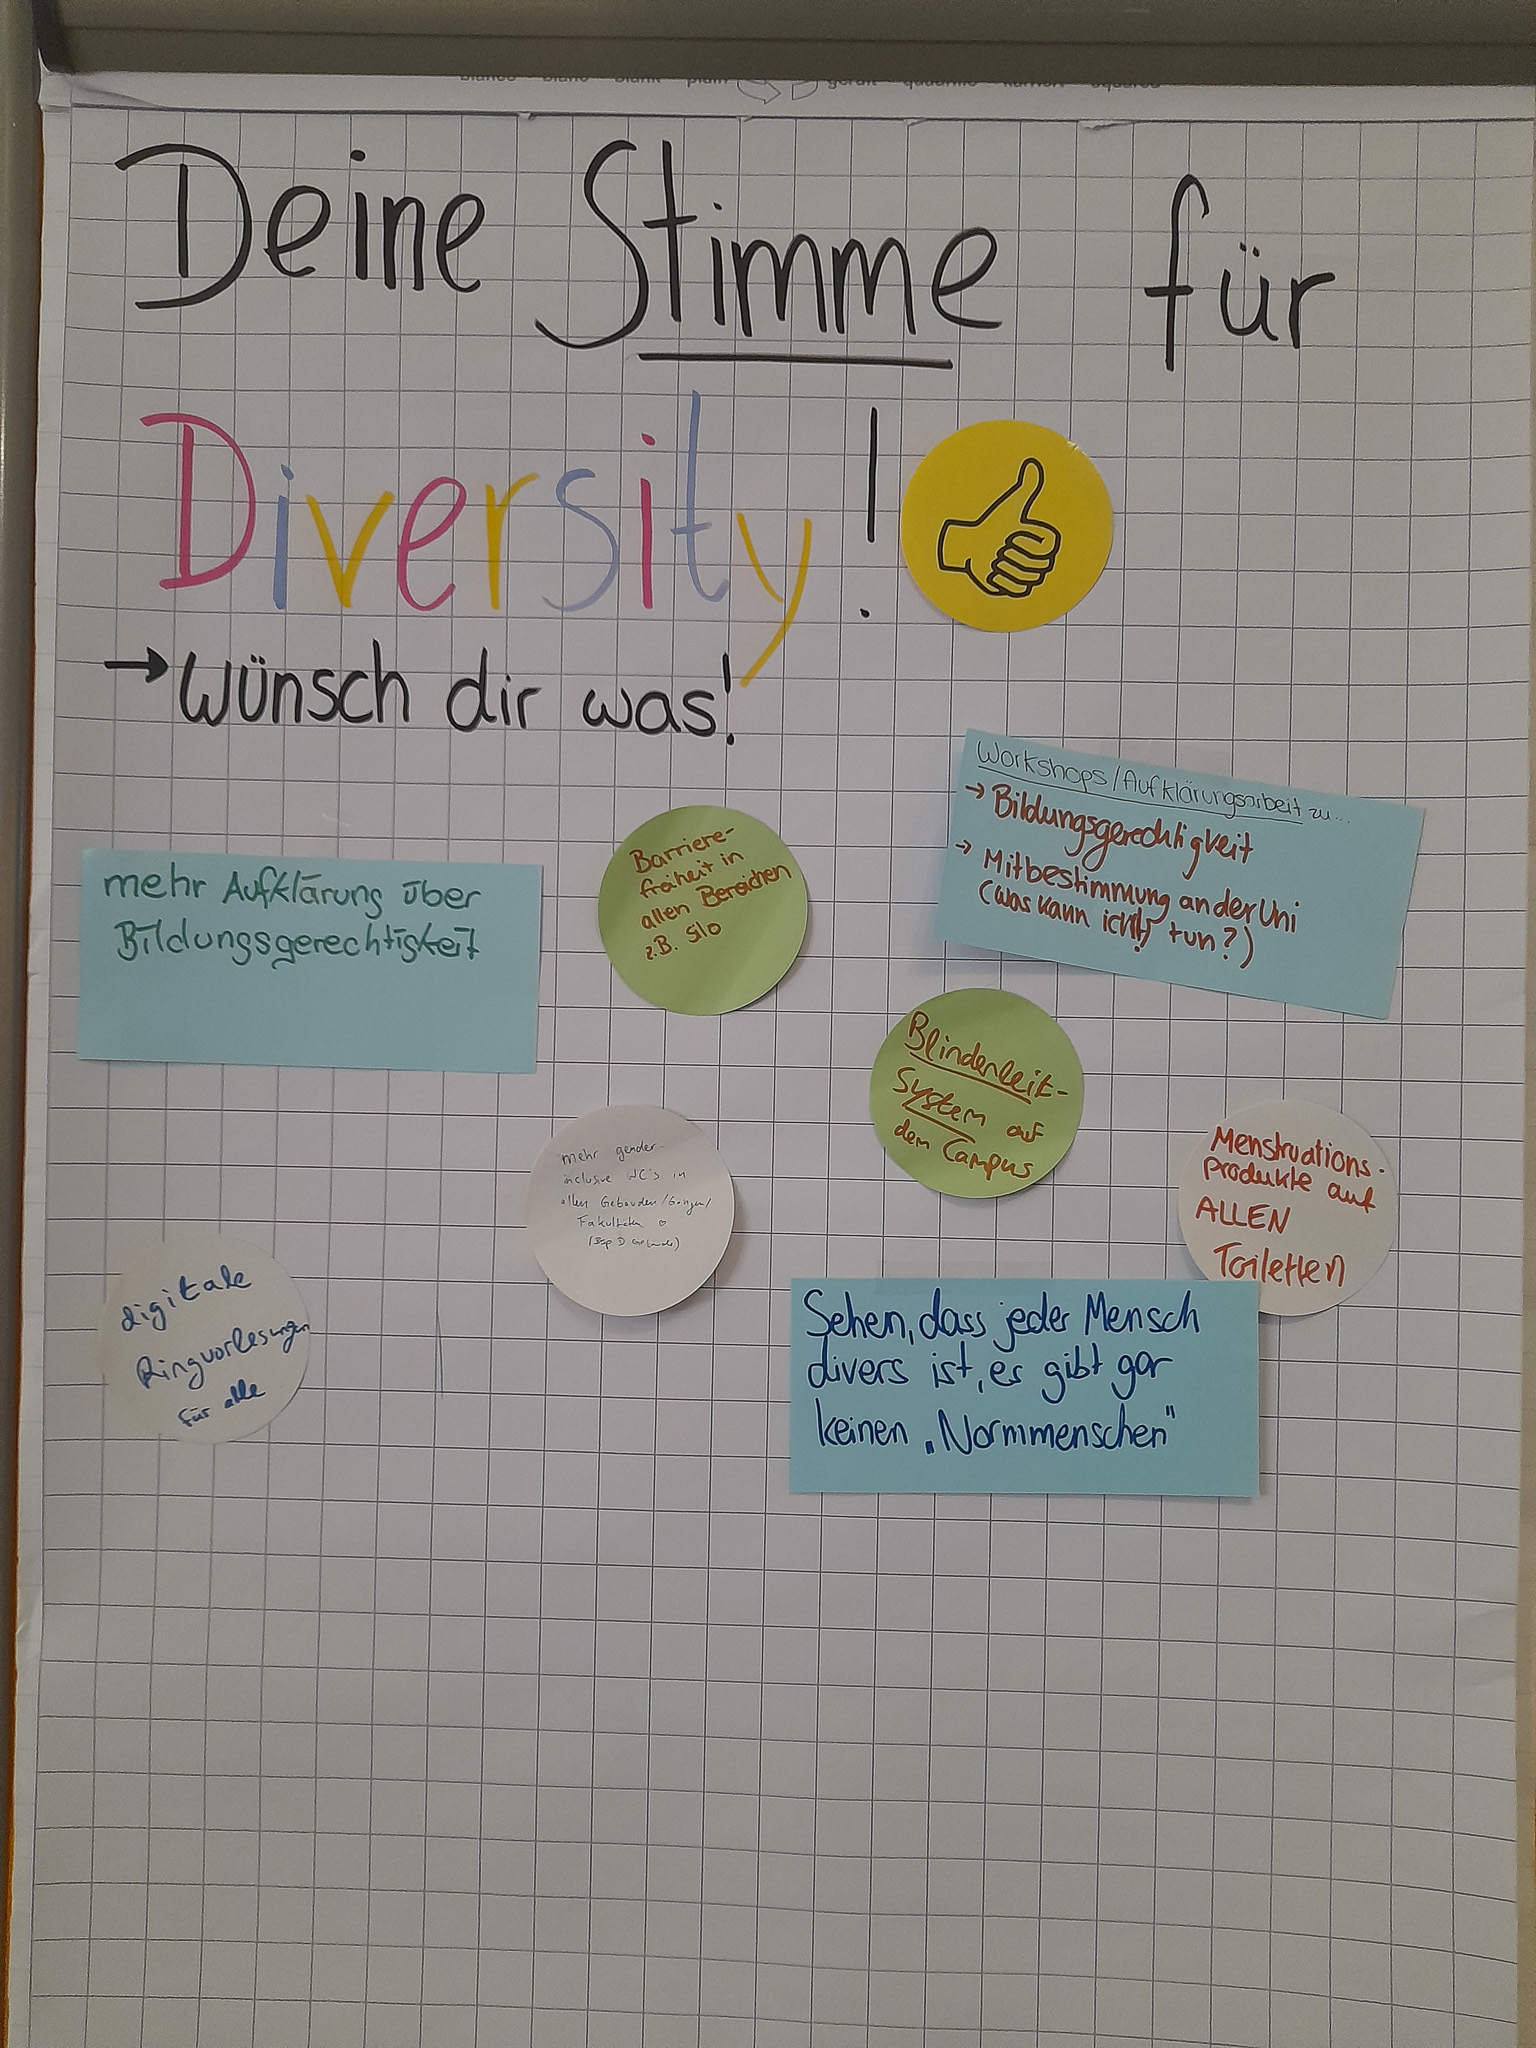 blanco blanc blank plain geruit quadrillé kariert squared
Deine Stimme für
Diversity!
→ wünsch dir was!
Workshops/Aufklärungsarbeit zu...
→ Bildungsgerechtigkeit
→ Mitbestimmung an der Uni
(was kann ich(!) tun?)
Barriere-
freiheit in
allen Bereichen
z.B. Silo
mehr Aufklärung über
Bildungsgerechtigkeit
Blindenleit-
System auf
dem Campus
mehr gender-
inclusive WC's in
allen Gebäuden/Gängen/
Fakultäten ♡
(Bsp. D Gebäude)
Menstruations-
produkte auf
ALLEN
Toiletten
digitale
Ringvorlesungen
für alle
Sehen, dass jeder Mensch
divers ist, es gibt gar
keinen „Normmenschen"